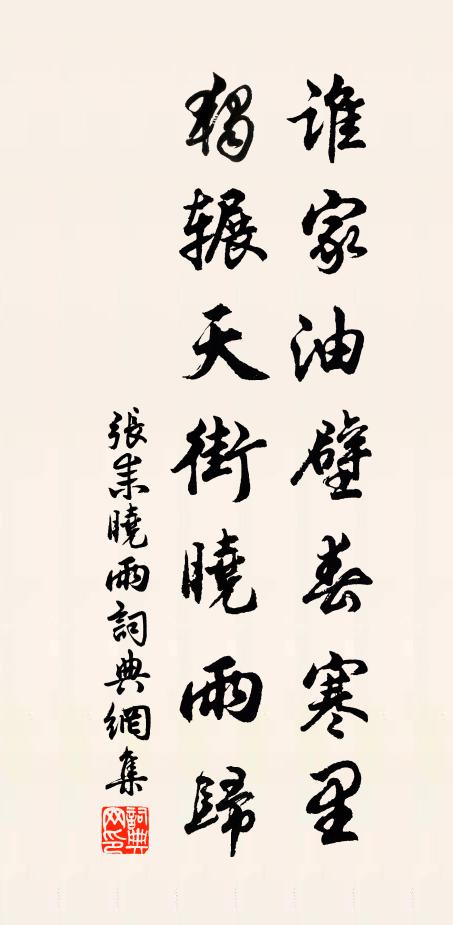 誰家油壁春寒里
獨辗天街曉雨歸
張耒曉雨詞典網集
詞典網印